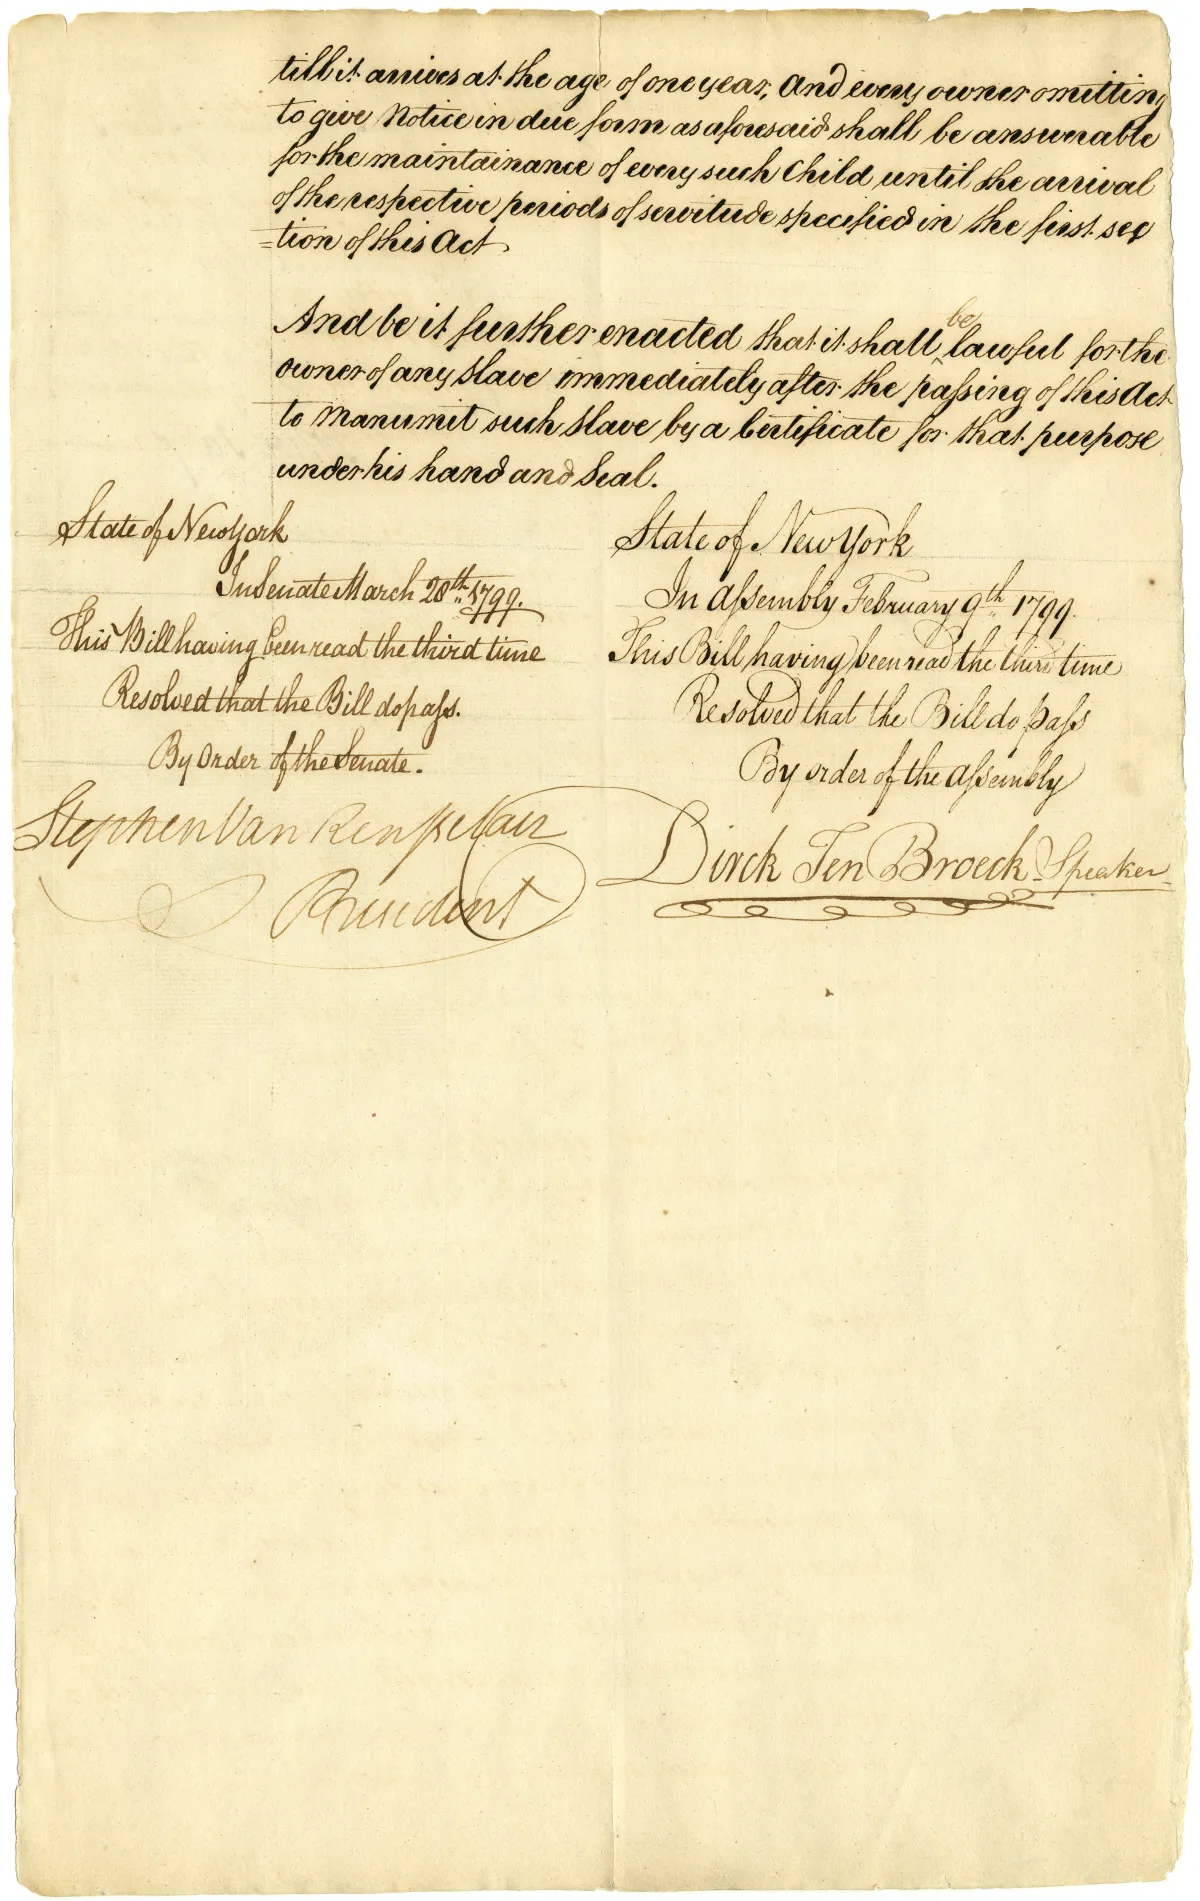 till it arrives at the age of one year, And every owner omitting
to give Notice in due form as aforesaid shall be answerable
for the maintainance of every such Child until the arrival
of the respective periods of servitude specified in the first sec
=tion of this Act
And be it further enacted that it shall be lawful for the
owner of any Slave immediately after the passing of this Act
to Manumit such Slave by a Certificate for that purpose
under his hand and Seal.
State of New York
In Senate March 28th 1799.
This Bill having been read the third time
Resolved that the Bill do pass.
By Order of the Senate.
Stephen Van Rensselaer
President
State of New York
In Assembly February 9th 1799.
This Bill having been read the third time
Resolved that the Bill do pass
By order of the Assembly
Dirck Ten Broeck Speaker